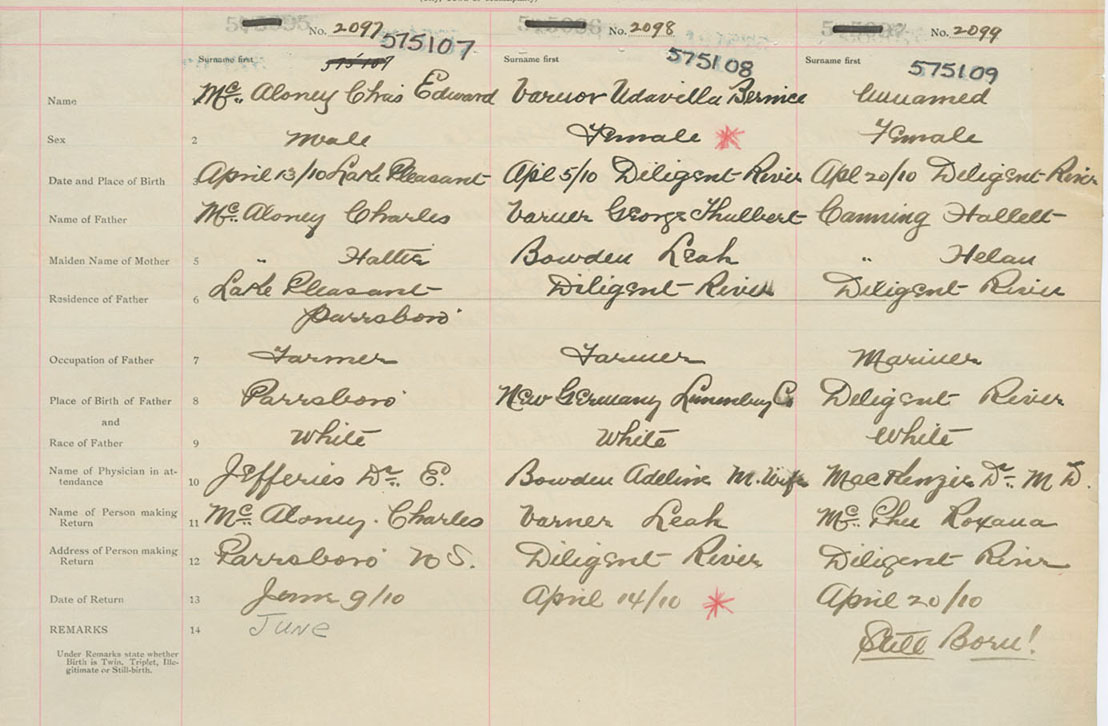 No. 2097 No. 2098 No. 2099
575107 575108 575109
Surname first Surname first Surname first
Name Mc. Aloney Chas Edward Varner Udavilla Bernice Unnamed
Sex 2 Male Female * Female
Date and Place of Birth 3 April 13/10 Lake Pleasant Apl 5/10 Diligent River Apl 20/10 Diligent River
Name of Father Mc. Aloney Charles Varner George Thulbert Canning Hallett
Maiden Name of Mother 5 " Hattie Bowden Leah " Helan
Residence of Father 6 Lake Pleasant Diligent River Diligent River
Parrsboro
Occupation of Father 7 Farmer Farmer Mariner
Place of Birth of Father 8 Parrsboro New Germany Lunenburg Co Diligent River
and
Race of Father 9 White White White
Name of Physician in at-
tendance 10 Jefferies Dr. E. Bowden Adeline M. Wife MacKenzie Dr. M D.
Name of Person making
Return 11 Mc. Aloney. Charles Varner Leah Mc. Phee Roxana
Address of Person making
Return 12 Parrsboro N S. Diligent River Diligent River
Date of Return 13 June 9/10 April 14/10 * April 20/10
REMARKS 14 JUNE Still Born!
Under Remarks state whether
Birth is Twin, Triplet, Ille-
gitimate or Still-birth.